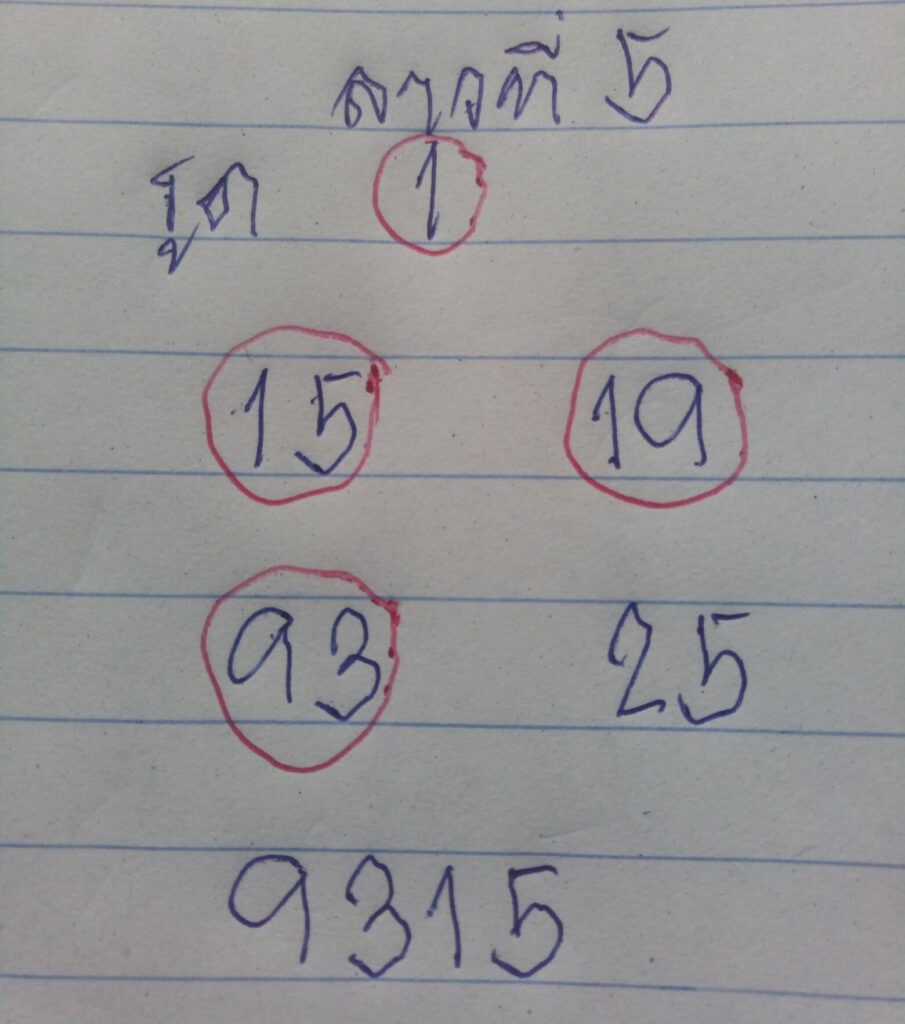 ลาวที่ 5
รูด 1
15 19
93 25
9315